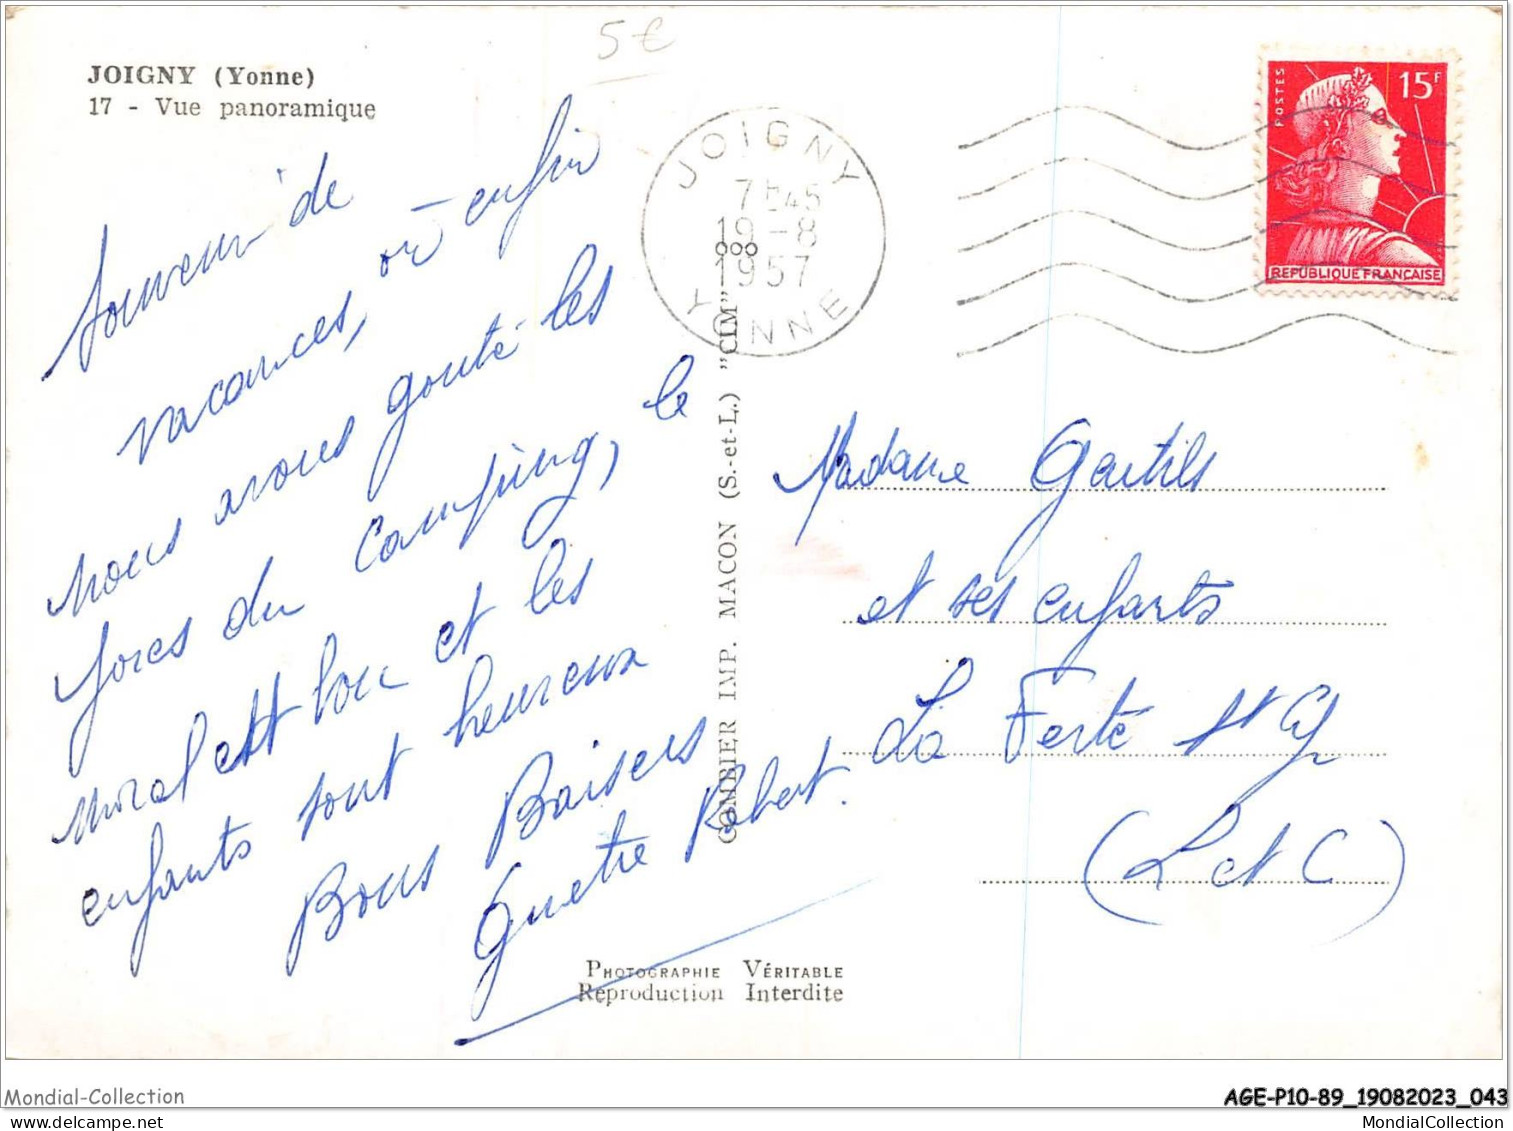 5€
JOIGNY (Yonne)
17 - Vue panoramique
Souvenir de
vacances, où enfin
nous avons gouté les
joies du camping, le
moral est bon et les
enfants sont heureux
Bons Baisers
Robert.
JOIGNY
7H45
19-8
1957
YONNE
ooo
COMBIER IMP. MACON (S.-et-L.) "CIM"
POSTES
15F
REPUBLIQUE FRANÇAISE
Madame Gentils
et ses enfants
La Ferté St Cyr
(L et C)
PHOTOGRAPHIE VÉRITABLE
Reproduction Interdite
Mondial-Collection
AGE-P10-89_19082023_043
https://www.delcampe.net/fr/collections/store/MondialCollection
MondialCollection